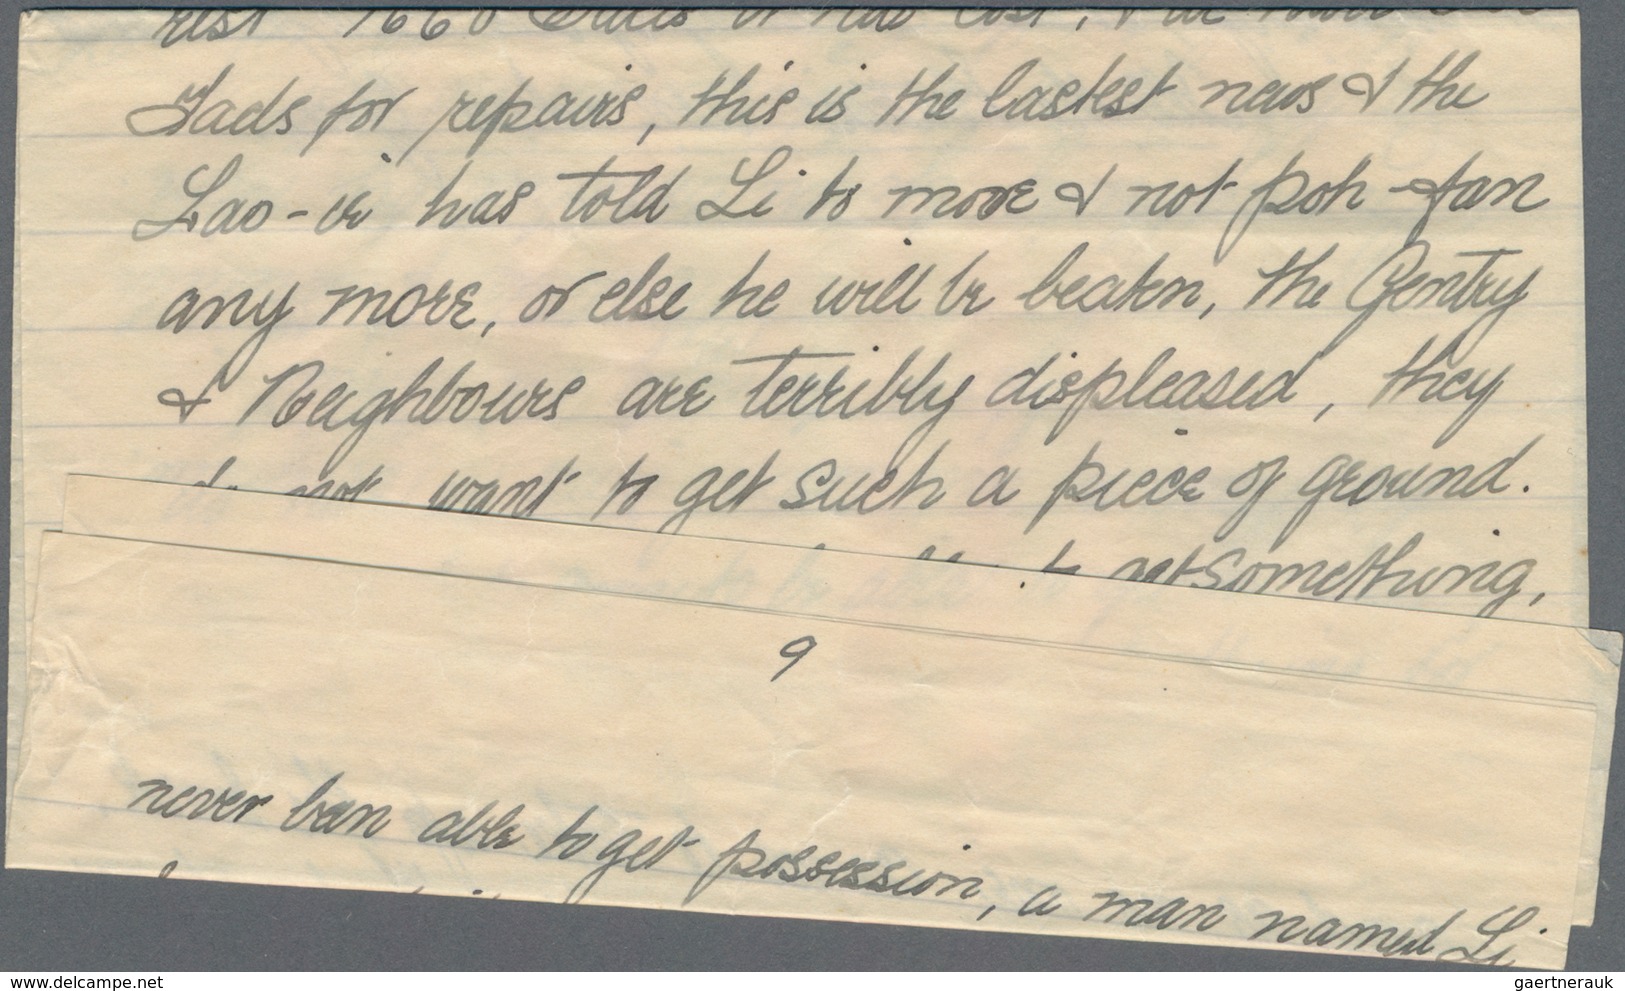 rest
Tads for repairs, this is the lastest news & the
Lao-ie has told Li to move & not poh-fan
any more, or else he will be beaten, the Gentry
& Neighbours are terribly displeased, they
do not want to get such a piece of ground.
to get something,
9
never been able to get possession, a man named Li
gaertnerauk@delcampe.net